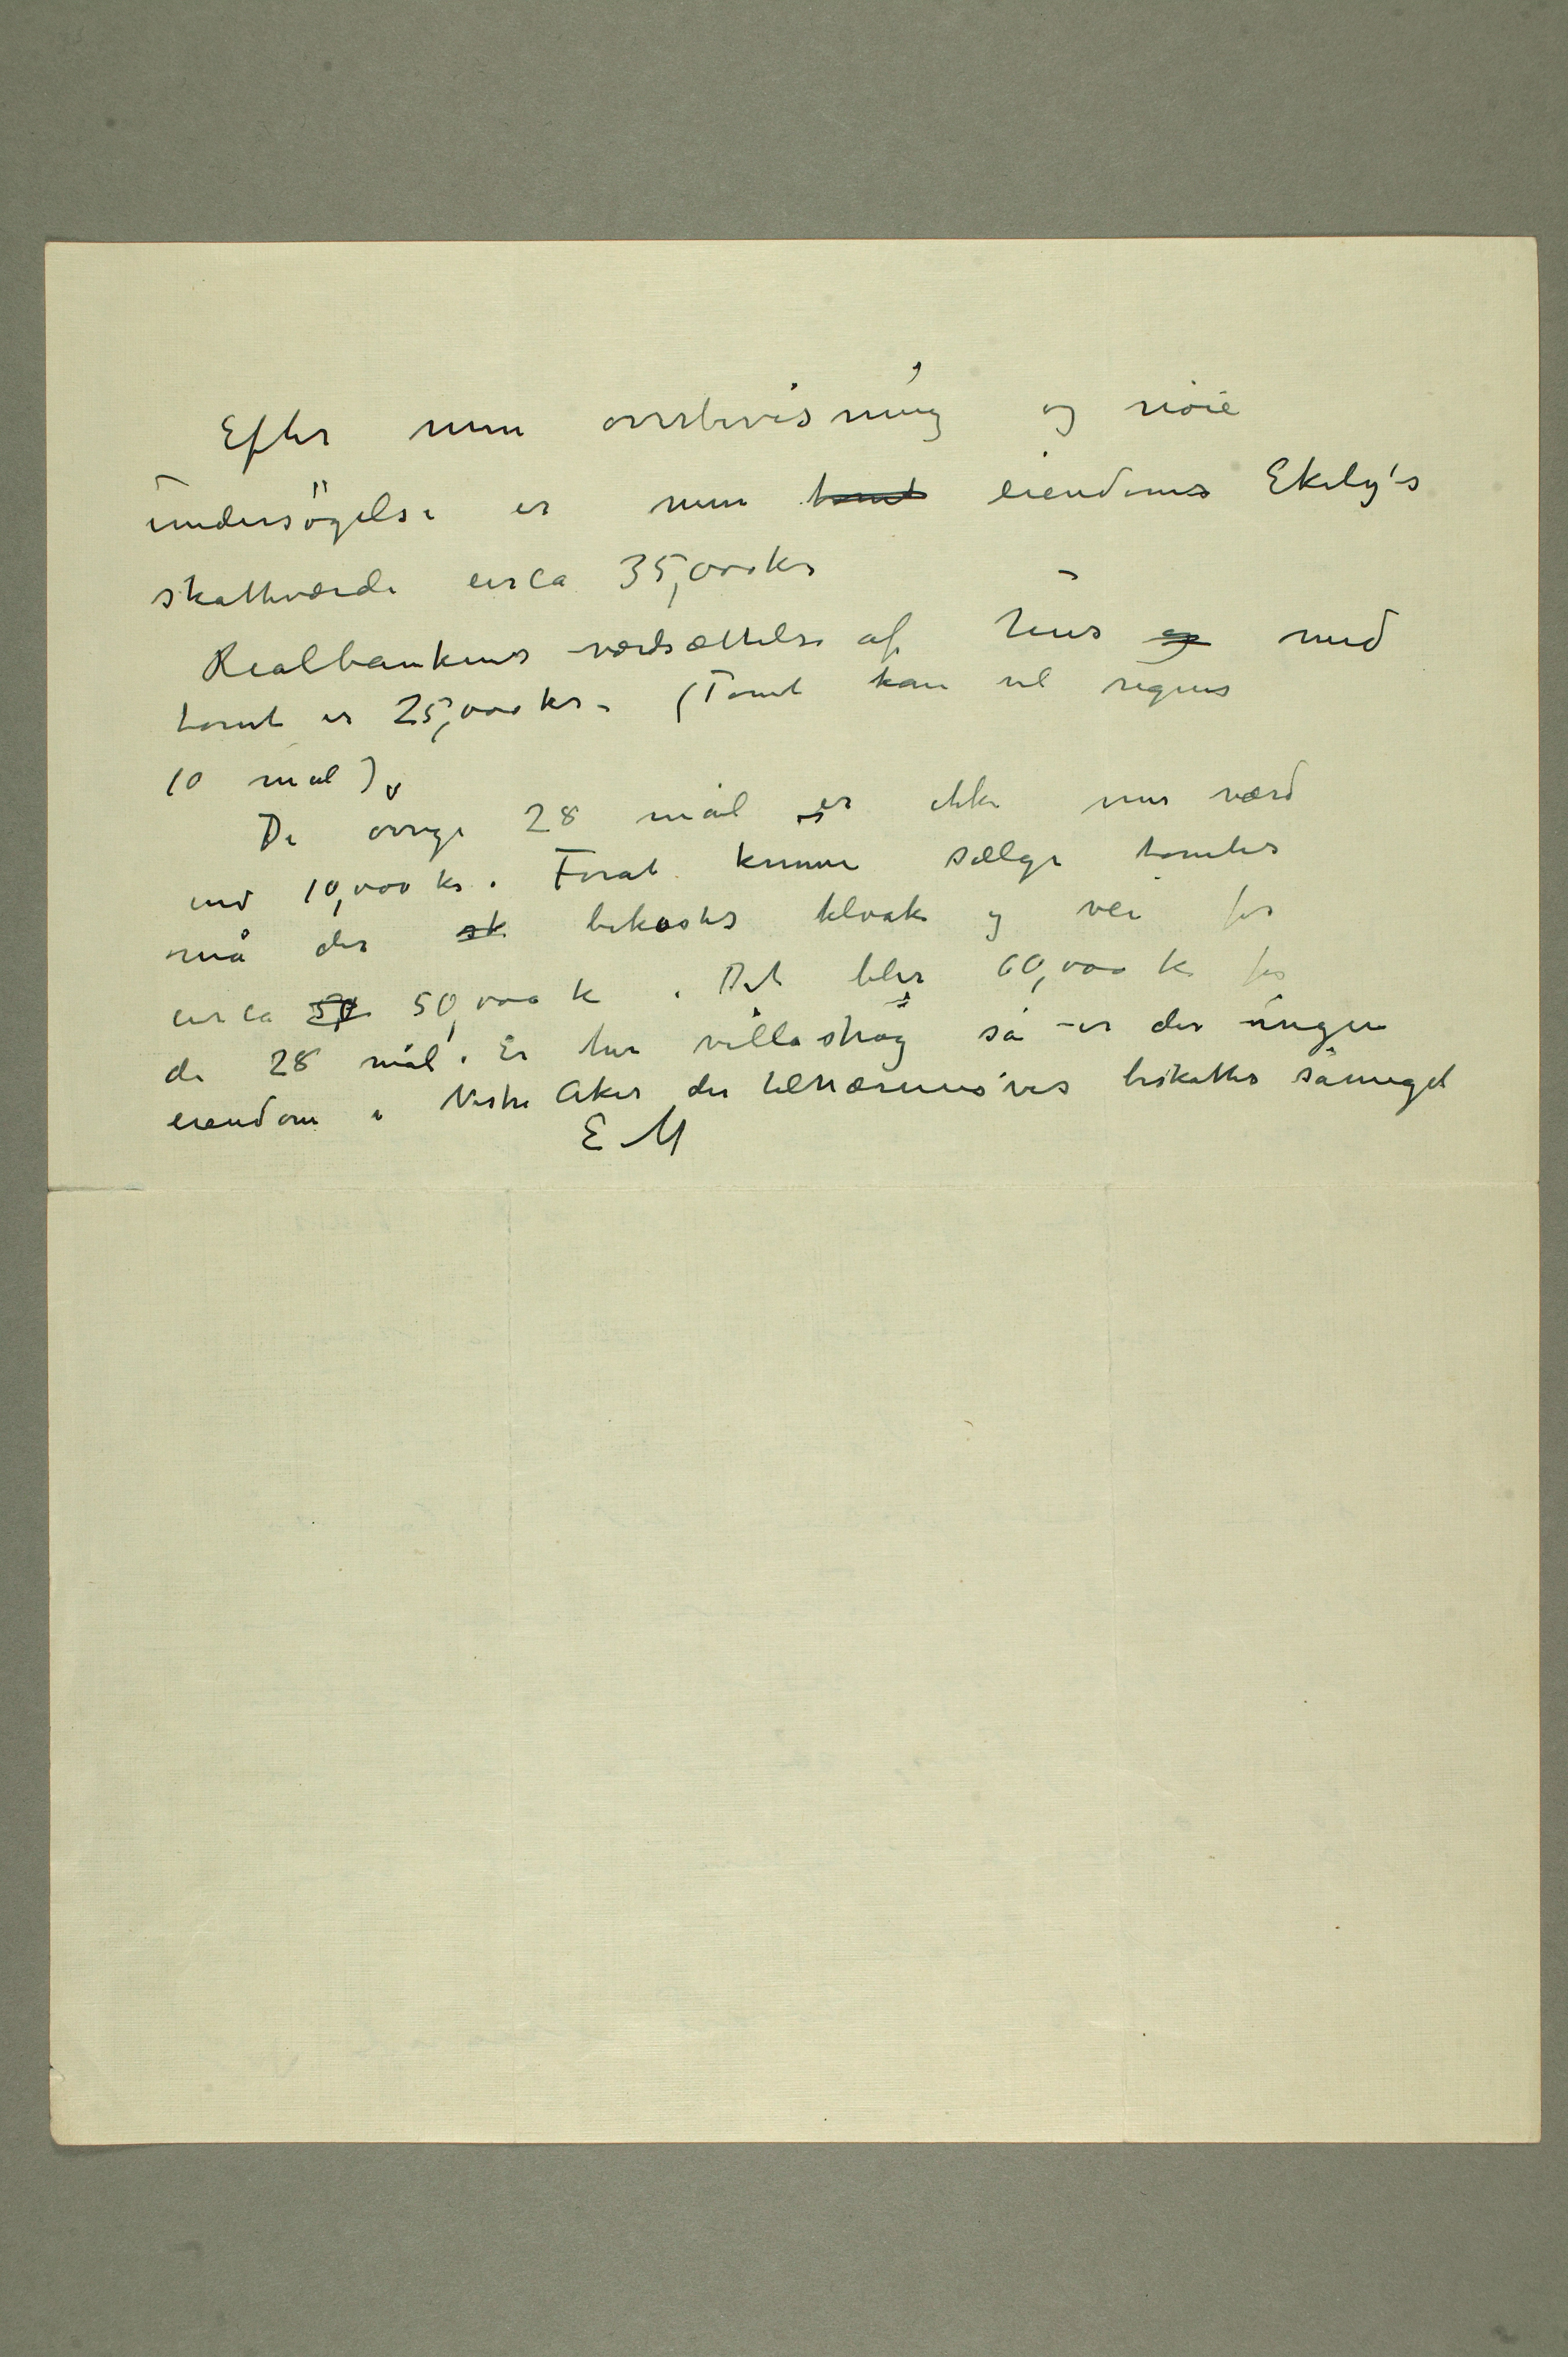 Efter min overbevisning og nöie
undersögelse er min tomt eiendoms Ekely's
skatteværdi circa 35,000 kr
Realbankens værdsættelse af hus og med
tomt er 25,000 kr – (Tomt kan vel regnes
10 mål).
De øvrige 28 mål er ikke mer værd
end 10,000 kr. Forat kunne sælge tomter
må der sk bekostes kloak og vei for
circa 50 50,000 k. Det blir 60,000 k for
de 28 mål. Er her villastrøg så er der ingen
eiendom i Vestre Aker der tilnærmensvis beskattes såmeget
E M